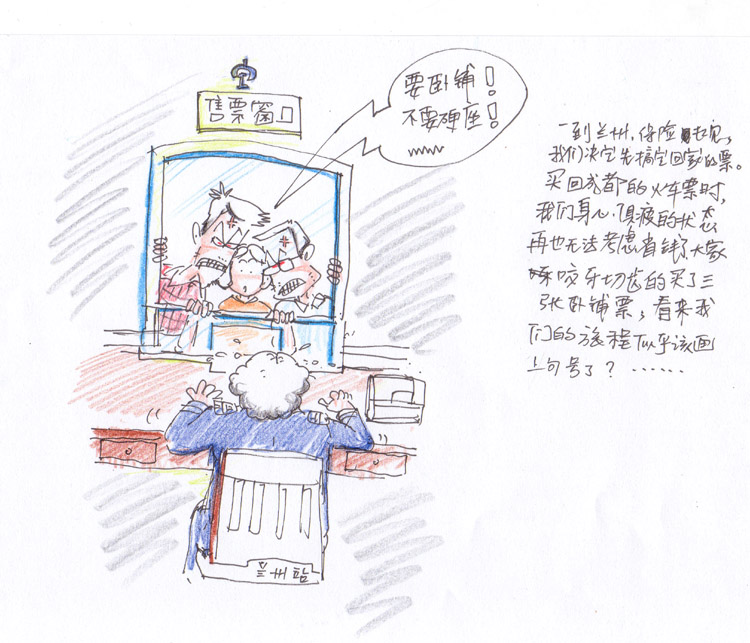 售票窗口
要卧铺！
不要硬座！
一到兰州，保险起见，
我们决定先搞定回家的票。
买回成都的火车票时，
我们身心俱疲的状态
再也无法考虑省钱了大家
咬牙切齿的买了三
张卧铺票，看来我
们的旅程似乎该画
上句号了？……
兰州站